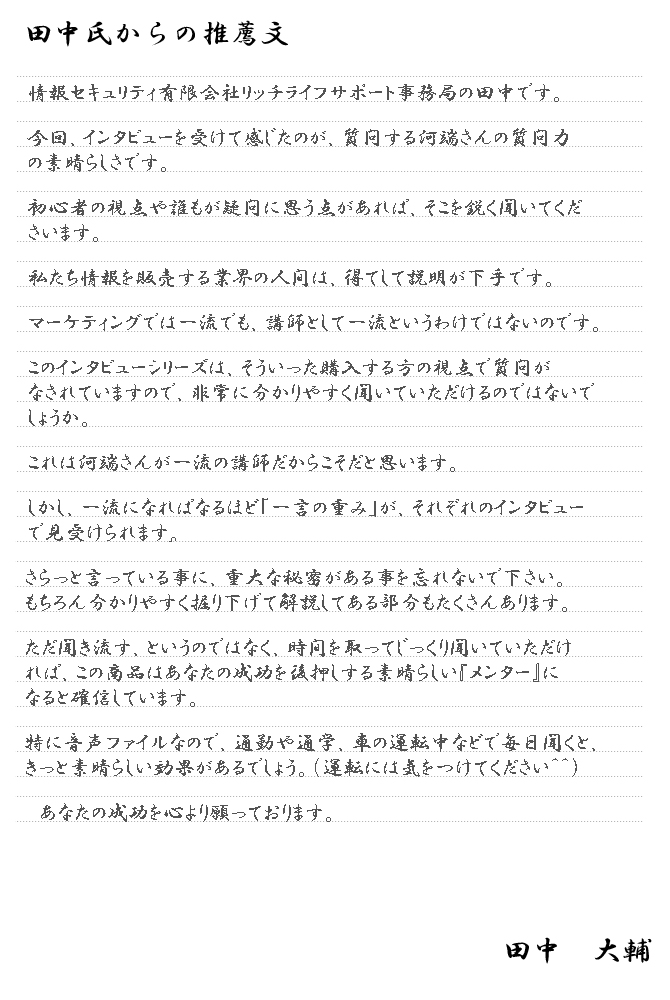 田中氏からの推薦文
情報セキュリティ有限会社リッチライフサポート事務局の田中です。
今回、インタビューを受けて感じたのが、質問する河端さんの質問力
の素晴らしさです。
初心者の視点や誰もが疑問に思う点があれば、そこを鋭く聞いてくだ
さいます。
私たち情報を販売する業界の人間は、得てして説明が下手です。
マーケティングでは一流でも、講師として一流というわけではないのです。
このインタビューシリーズは、そういった購入する方の視点で質問が
なされていますので、非常に分かりやすく聞いていただけるのではないで
しょうか。
これは河端さんが一流の講師だからこそだと思います。
しかし、一流になればなるほど「一言の重み」が、それぞれのインタビュー
で見受けられます。
さらっと言っている事に、重大な秘密がある事を忘れないで下さい。
もちろん分かりやすく掘り下げて解説してある部分もたくさんあります。
ただ聞き流す、というのではなく、時間を取ってじっくり聞いていただけ
れば、この商品はあなたの成功を後押しする素晴らしい『メンター』に
なると確信しています。
特に音声ファイルなので、通勤や通学、車の運転中などで毎日聞くと、
きっと素晴らしい効果があるでしょう。(運転には気をつけてください^^)
あなたの成功を心より願っております。
田中　大輔